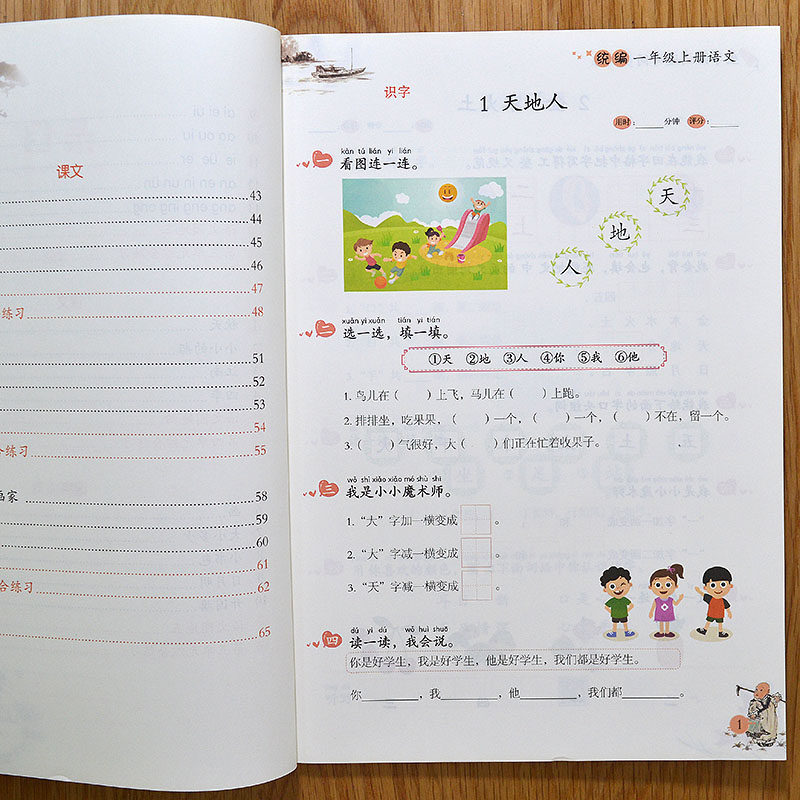 课文
43
44
45
46
47
练习 48
51
52
53
54
合练习 55
画家 58
59
60
61
合练习 62
65
统编 一年级上册语文
识字
1 天地人
用时： 分钟 评分：
kàn tú lián yi lián
一 看图连一连。
天
地
人
xuǎn yi xuǎn tián yi tián
二 选一选，填一填。
①天 ②地 ③人 ④你 ⑤我 ⑥他
1. 鸟儿在（ ）上飞，马儿在（ ）上跑。
2. 排排坐，吃果果，（ ）一个，（ ）一个，（ ）不在，留一个。
3.（ ）气很好，大（ ）们正在忙着收果子。
wǒ shì xiǎo xiǎo mó shù shī
三 我是小小魔术师。
1. “大”字加一横变成 。
2. “大”字减一横变成 。
3. “天”字减一横变成 。
dú yi dú wǒ huì shuō
四 读一读，我会说。
你是好学生，我是好学生，他是好学生，我们都是好学生。
你________，我________，他________，我们都________。
1